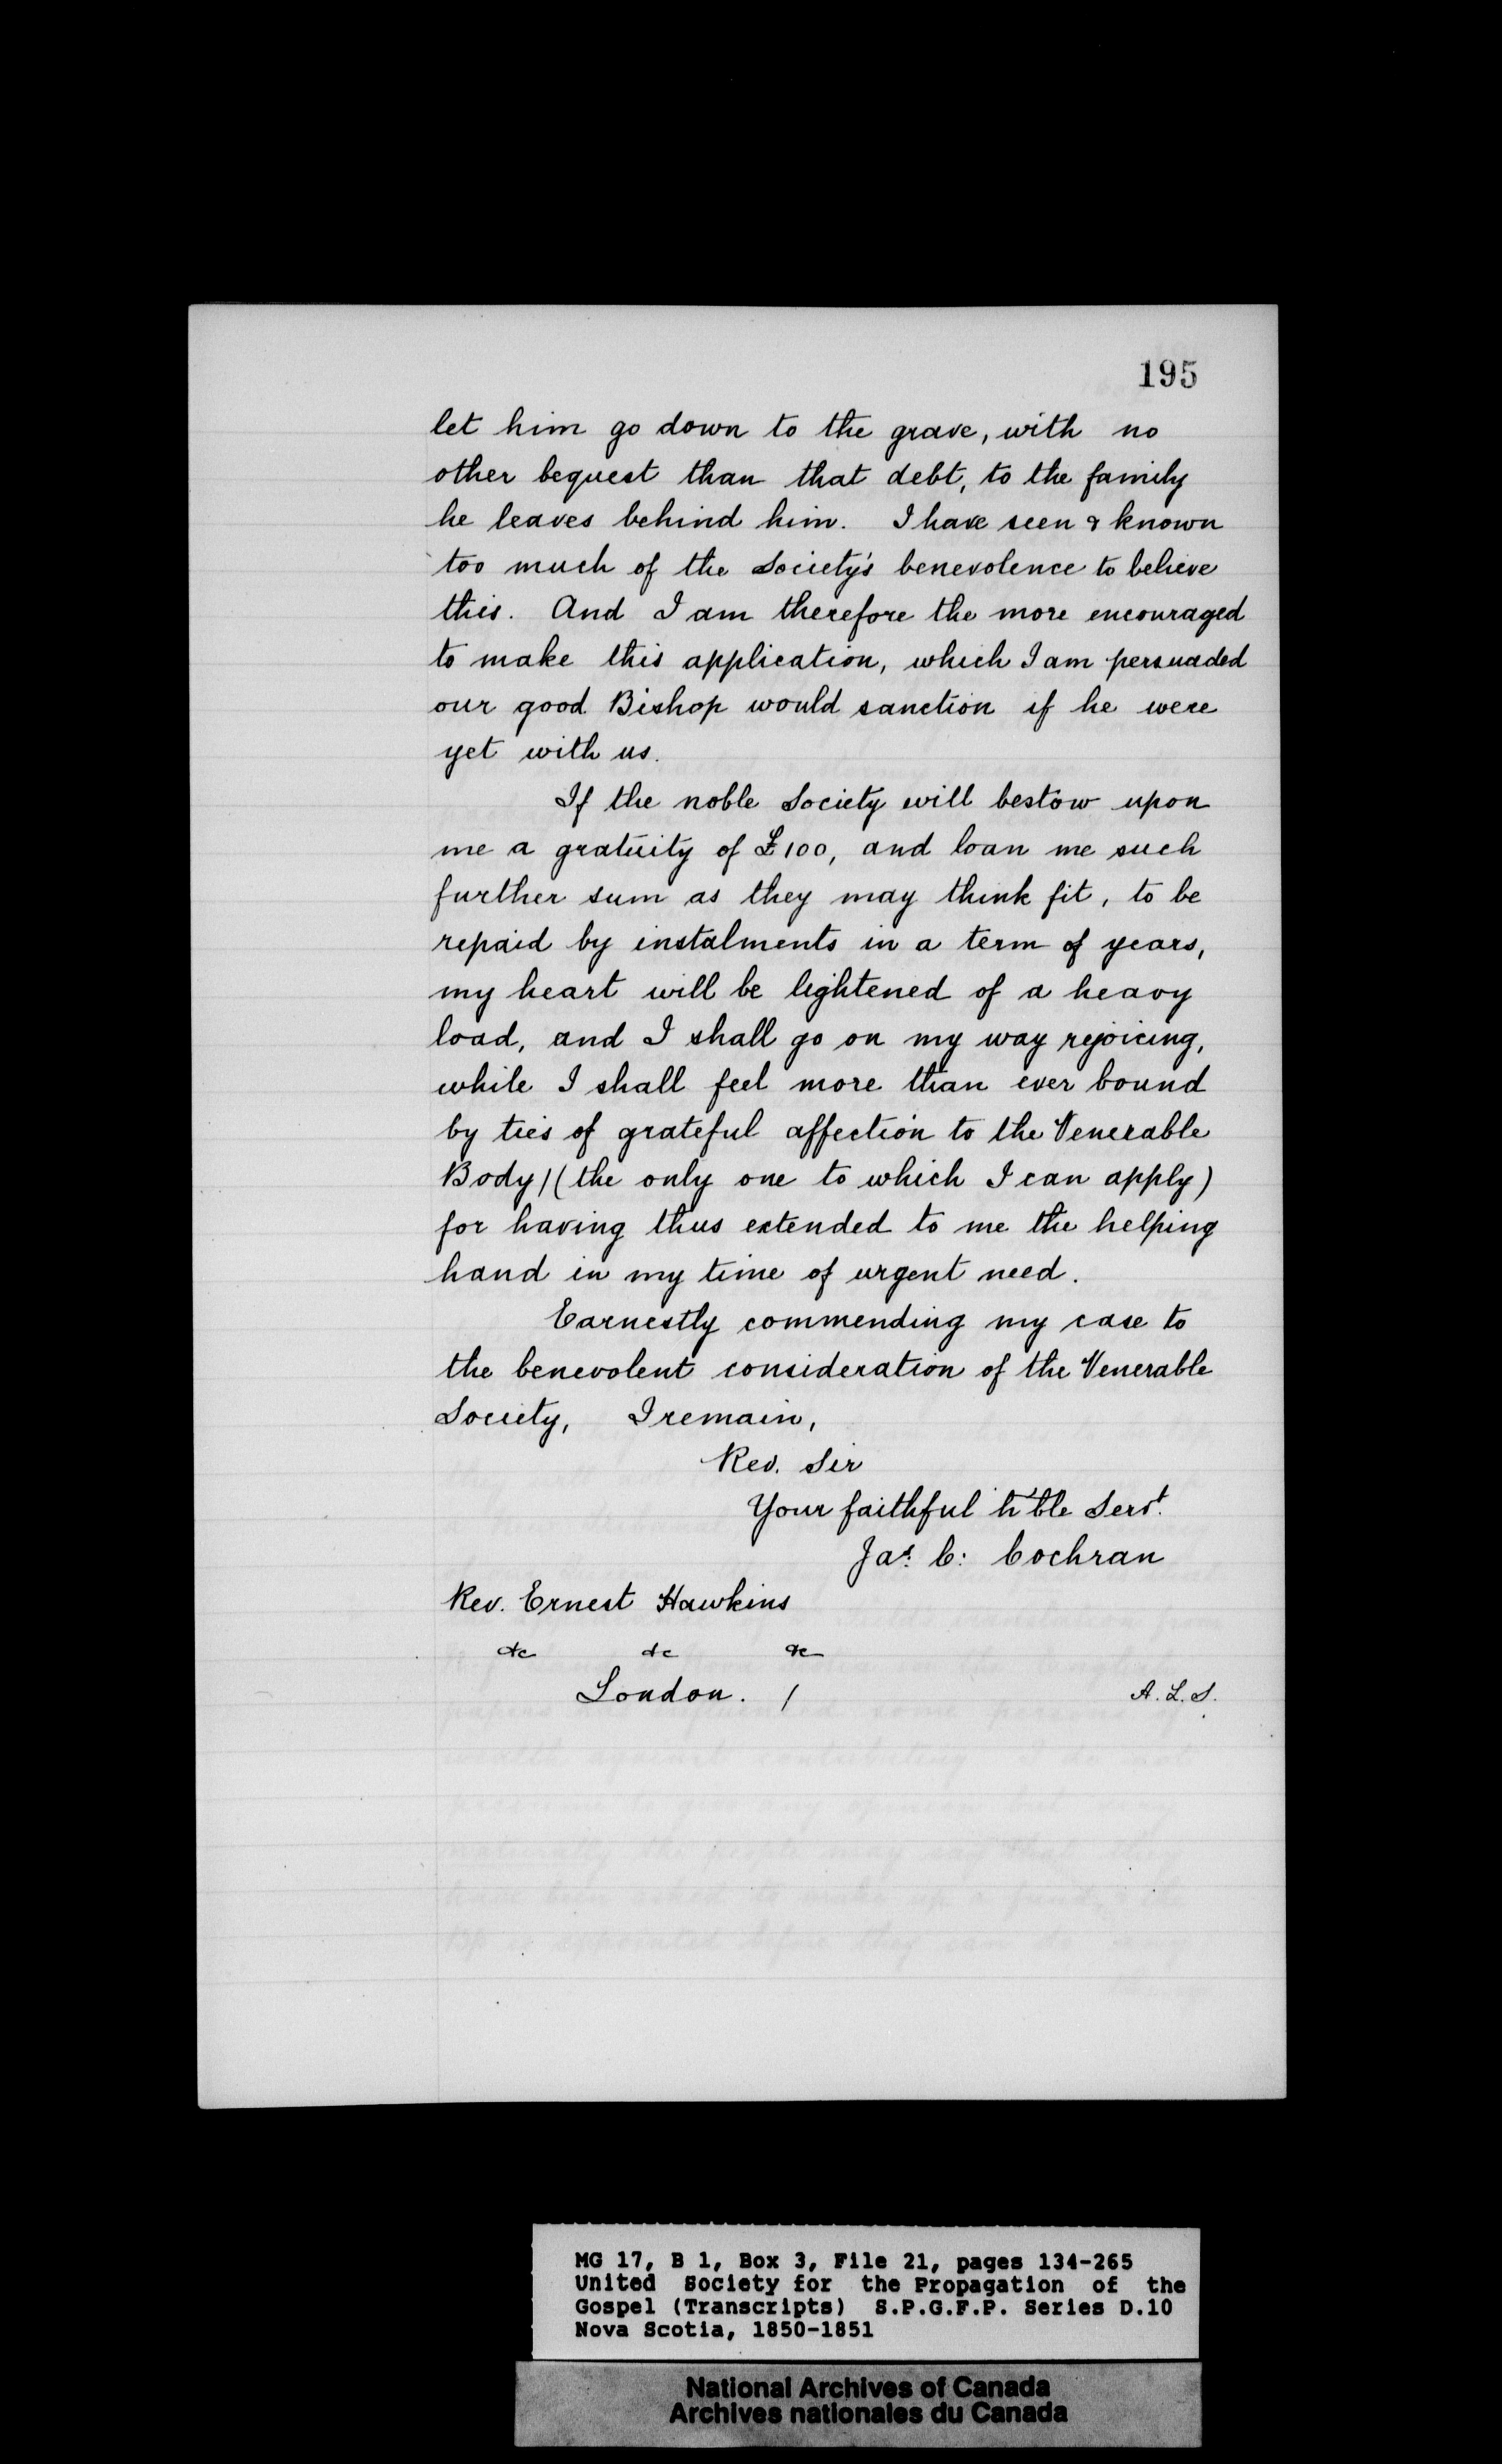 195
let him go down to the grave, with no
other bequest than that debt, to the family
he leaves behind him. I have seen & known
too much of the Society's benevolence to believe
this. And I am therefore the more encouraged
to make this application, which I am persuaded
our good Bishop would sanction if he were
yet with us.
If the noble Society will bestow upon
me a gratuity of £100, and loan me such
further sum as they may think fit, to be
repaid by instalments in a term of years,
my heart will be lightened of a heavy
load, and I shall go on my way rejoicing,
while I shall feel more than ever bound
by ties of grateful affection to the Venerable
Body/(the only one to which I can apply)
for having thus extended to me the helping
hand in my time of urgent need.
Earnestly commending my case to
the benevolent consideration of the Venerable
Society, I remain,
Rev. Sir
Your faithful h'ble Servt.
Jas. C: Cochran
Rev. Ernest Hawkins
&c &c &c
London. /
A.L.S.
MG 17, B 1, Box 3, File 21, pages 134-265
United Society for the Propagation of the
Gospel (Transcripts) S.P.G.F.P. Series D.10
Nova Scotia, 1850-1851
National Archives of Canada
Archives nationales du Canada